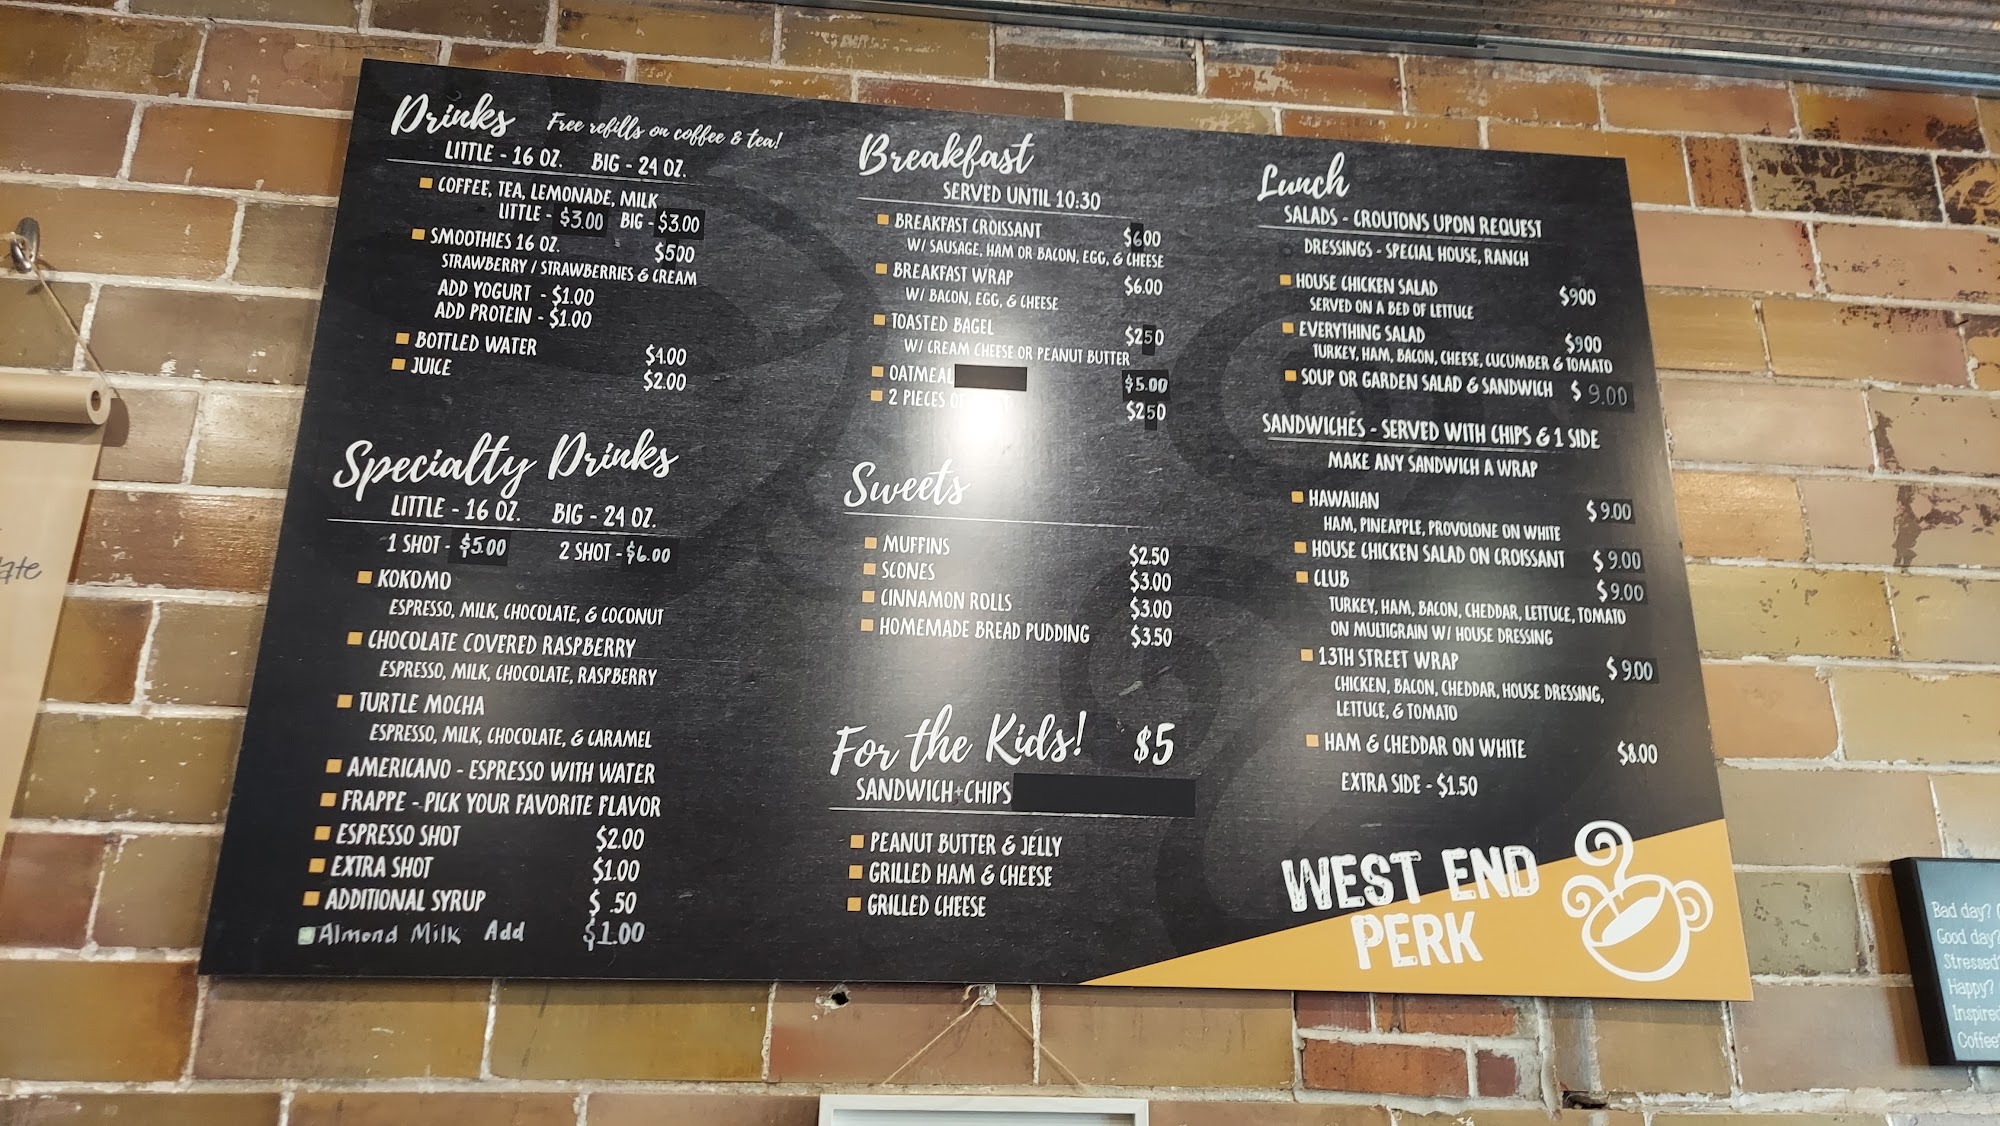 Drinks Free refills on coffee & tea!
LITTLE - 16 OZ. BIG - 24 OZ.
COFFEE, TEA, LEMONADE, MILK
LITTLE - $3.00 BIG - $3.00
SMOOTHIES 16 OZ. $500
STRAWBERRY / STRAWBERRIES & CREAM
ADD YOGURT - $1.00
ADD PROTEIN - $1.00
BOTTLED WATER $1.00
JUICE $2.00
Specialty Drinks
LITTLE - 16 OZ. BIG - 24 OZ.
1 SHOT - $5.00 2 SHOT - $6.00
KOKOMO
ESPRESSO, MILK, CHOCOLATE, & COCONUT
CHOCOLATE COVERED RASPBERRY
ESPRESSO, MILK, CHOCOLATE, RASPBERRY
TURTLE MOCHA
ESPRESSO, MILK, CHOCOLATE, & CARAMEL
AMERICANO - ESPRESSO WITH WATER
FRAPPE - PICK YOUR FAVORITE FLAVOR
ESPRESSO SHOT $2.00
EXTRA SHOT $1.00
ADDITIONAL SYRUP $ .50
Almond Milk Add $1.00
Breakfast
SERVED UNTIL 10:30
BREAKFAST CROISSANT $600
W/ SAUSAGE, HAM OR BACON, EGG, & CHEESE
BREAKFAST WRAP $6.00
W/ BACON, EGG, & CHEESE
TOASTED BAGEL $250
W/ CREAM CHEESE OR PEANUT BUTTER
OATMEAL $5.00
2 PIECES OF $250
Sweets
MUFFINS $2.50
SCONES $3.00
CINNAMON ROLLS $3.00
HOMEMADE BREAD PUDDING $3.50
For the Kids! $5
SANDWICH+CHIPS
PEANUT BUTTER & JELLY
GRILLED HAM & CHEESE
GRILLED CHEESE
Lunch
SALADS - CROUTONS UPON REQUEST
DRESSINGS - SPECIAL HOUSE, RANCH
HOUSE CHICKEN SALAD $900
SERVED ON A BED OF LETTUCE
EVERYTHING SALAD $900
TURKEY, HAM, BACON, CHEESE, CUCUMBER & TOMATO
SOUP OR GARDEN SALAD & SANDWICH $ 9.00
SANDWICHES - SERVED WITH CHIPS & 1 SIDE
MAKE ANY SANDWICH A WRAP
HAWAIIAN $ 9.00
HAM, PINEAPPLE, PROVOLONE ON WHITE
HOUSE CHICKEN SALAD ON CROISSANT $ 9.00
CLUB $ 9.00
TURKEY, HAM, BACON, CHEDDAR, LETTUCE, TOMATO
ON MULTIGRAIN W/ HOUSE DRESSING
13TH STREET WRAP $ 9.00
CHICKEN, BACON, CHEDDAR, HOUSE DRESSING,
LETTUCE, & TOMATO
HAM & CHEDDAR ON WHITE $8.00
EXTRA SIDE - $1.50
WEST END
PERK
Bad day?
Good day?
Stressed?
Happy?
Inspired
Coffee